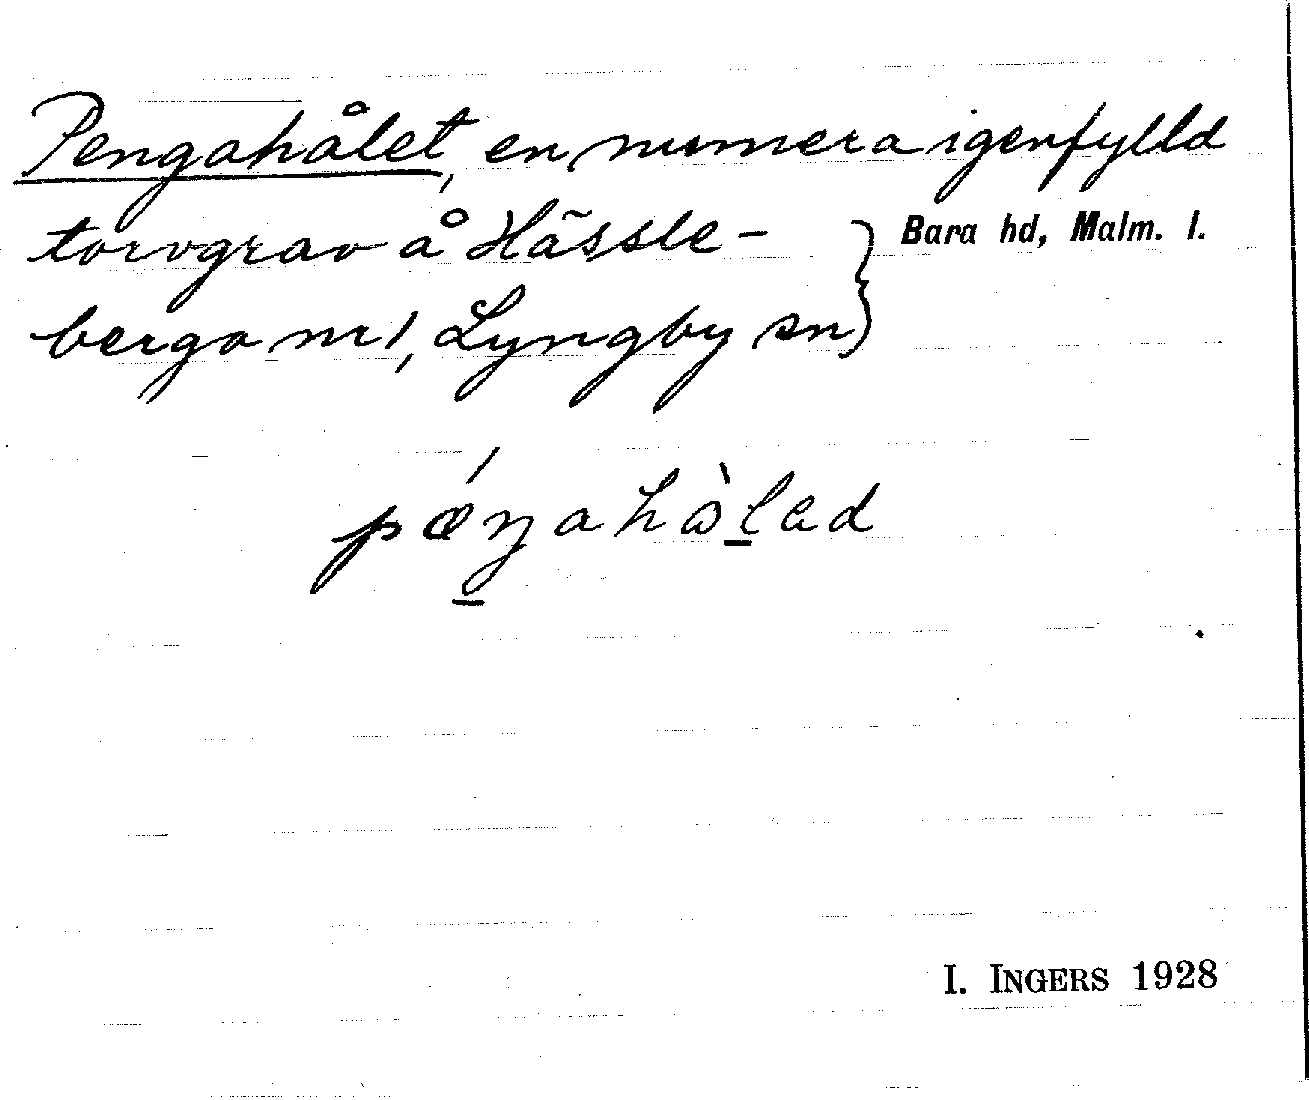 Pengahålet, en numera igenfylld
torvgrav å Hässle-
berga nr 1, Lyngby sn } Bara hd, Malm. l.
pǽŋahòlad
I. INGERS 1928